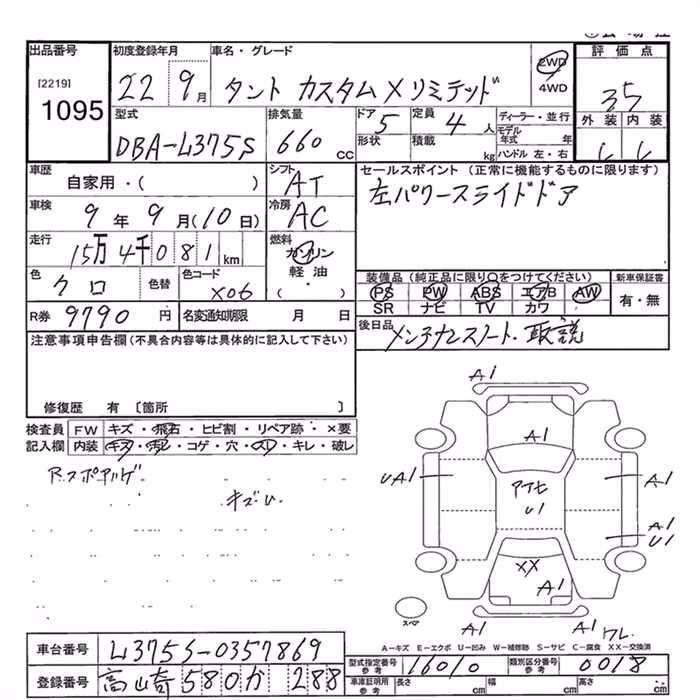 出品番号 初度登録年月 車名・グレード 評価点
[2219] 22 9月 タント カスタム X リミテッド 2WD 4WD 35
1095
型式 排気量 ドア 5 定員 4人 ディーラー・並行 外装 内装
DBA-L375S 660 cc 形状 積載 kg モデル年式 年 ハンドル 左・右
車歴 シフト セールスポイント (正常に機能するものに限ります)
自家用・( ) AT 左パワースライドドア
車検 9年 9月(10日) 冷房 AC
走行 15万4千081km 燃料 ガソリン
軽油
・( )
色 クロ 色替 色コード X06 装備品(純正品に限り○をつけてください) 新車保証書
PS PW ABS エアB AW 有・無
SR ナビ TV カワ
R券 9790円 名変通知期限 月 日 後日品 メンテナンスノート・取説
注意事項申告欄(不具合内容等は具体的に記入して下さい)
修復歴 有 〔箇所 〕
検査員 FW キズ・飛石・ヒビ割・リペア跡・×要
記入欄 内装 キズ・汚レ・コゲ・穴・スレ・キレ・破レ
キズU
A1
A1
UA1
U1
A1
A1
U1
XX
A1
A1
A1
スペア
A-キズ E-エクボ U-凹み W-補修跡 S-サビ C-腐食 XX-交換済
車台番号 L375S-0357869
型式指定番号 参考 16010 類別区分番号 参考 0018
登録番号 580 か 288
車庫証明用 参考 長さ cm 幅 cm 高さ cm